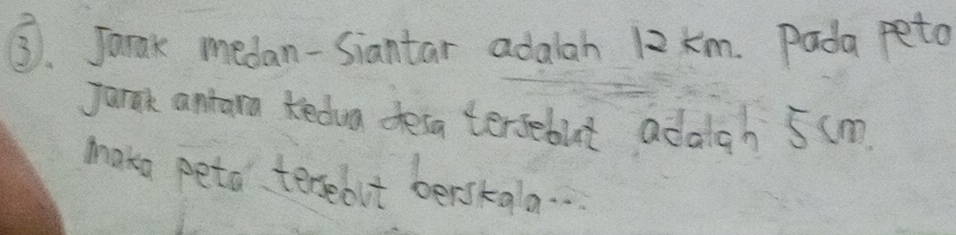 3. Jarak medan-Siantar adalah 12 km. Pada peta
Jarak antara kedua desa tersebut adalah 5 cm.
maka peta tersebut berskala...